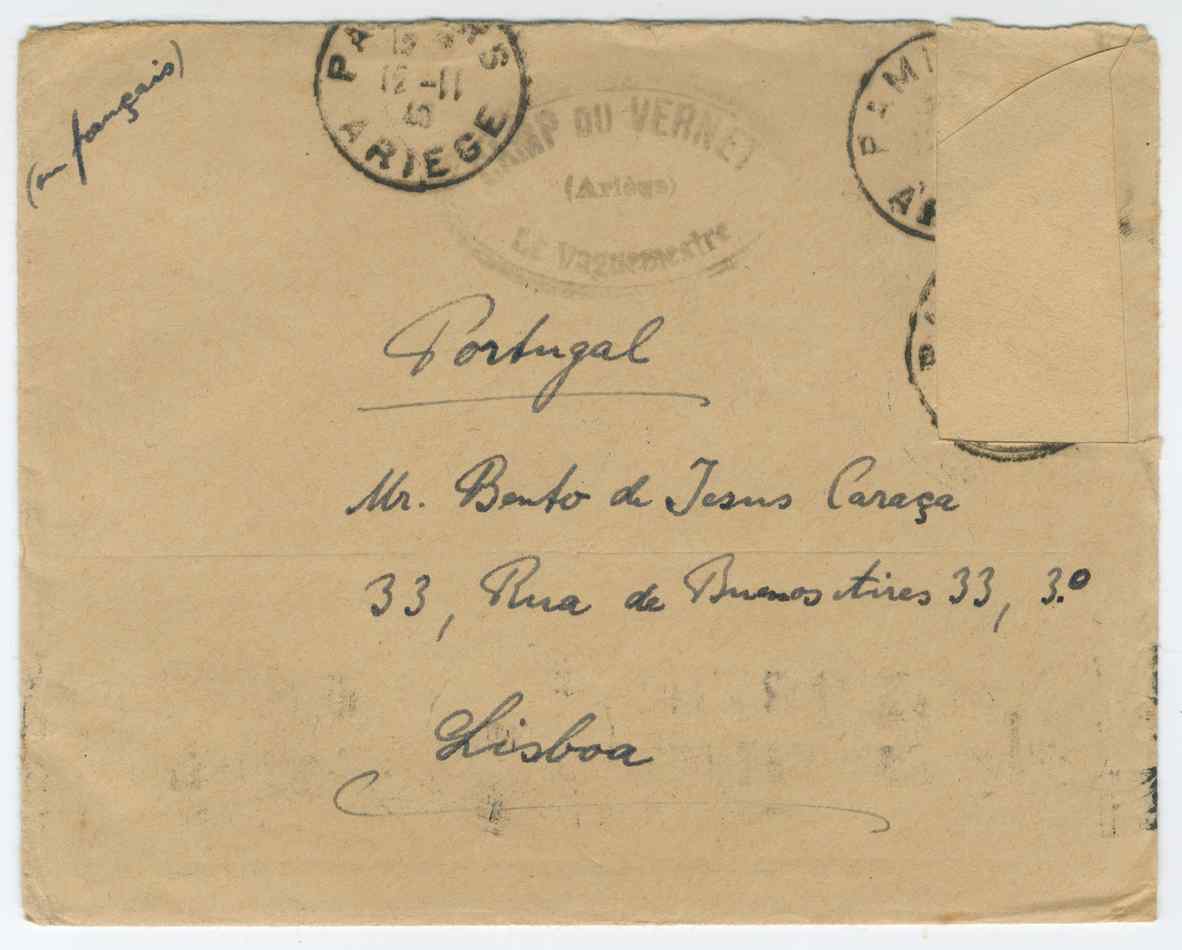 (en français)
ARIEGE
12 -11
CAMP DU VERNET
(Ariège)
Le Vaguemestre
PAMI
Portugal
Mr. Bento de Jesus Caraça
33, Rua de Buenos Aires 33, 3.º
Lisboa